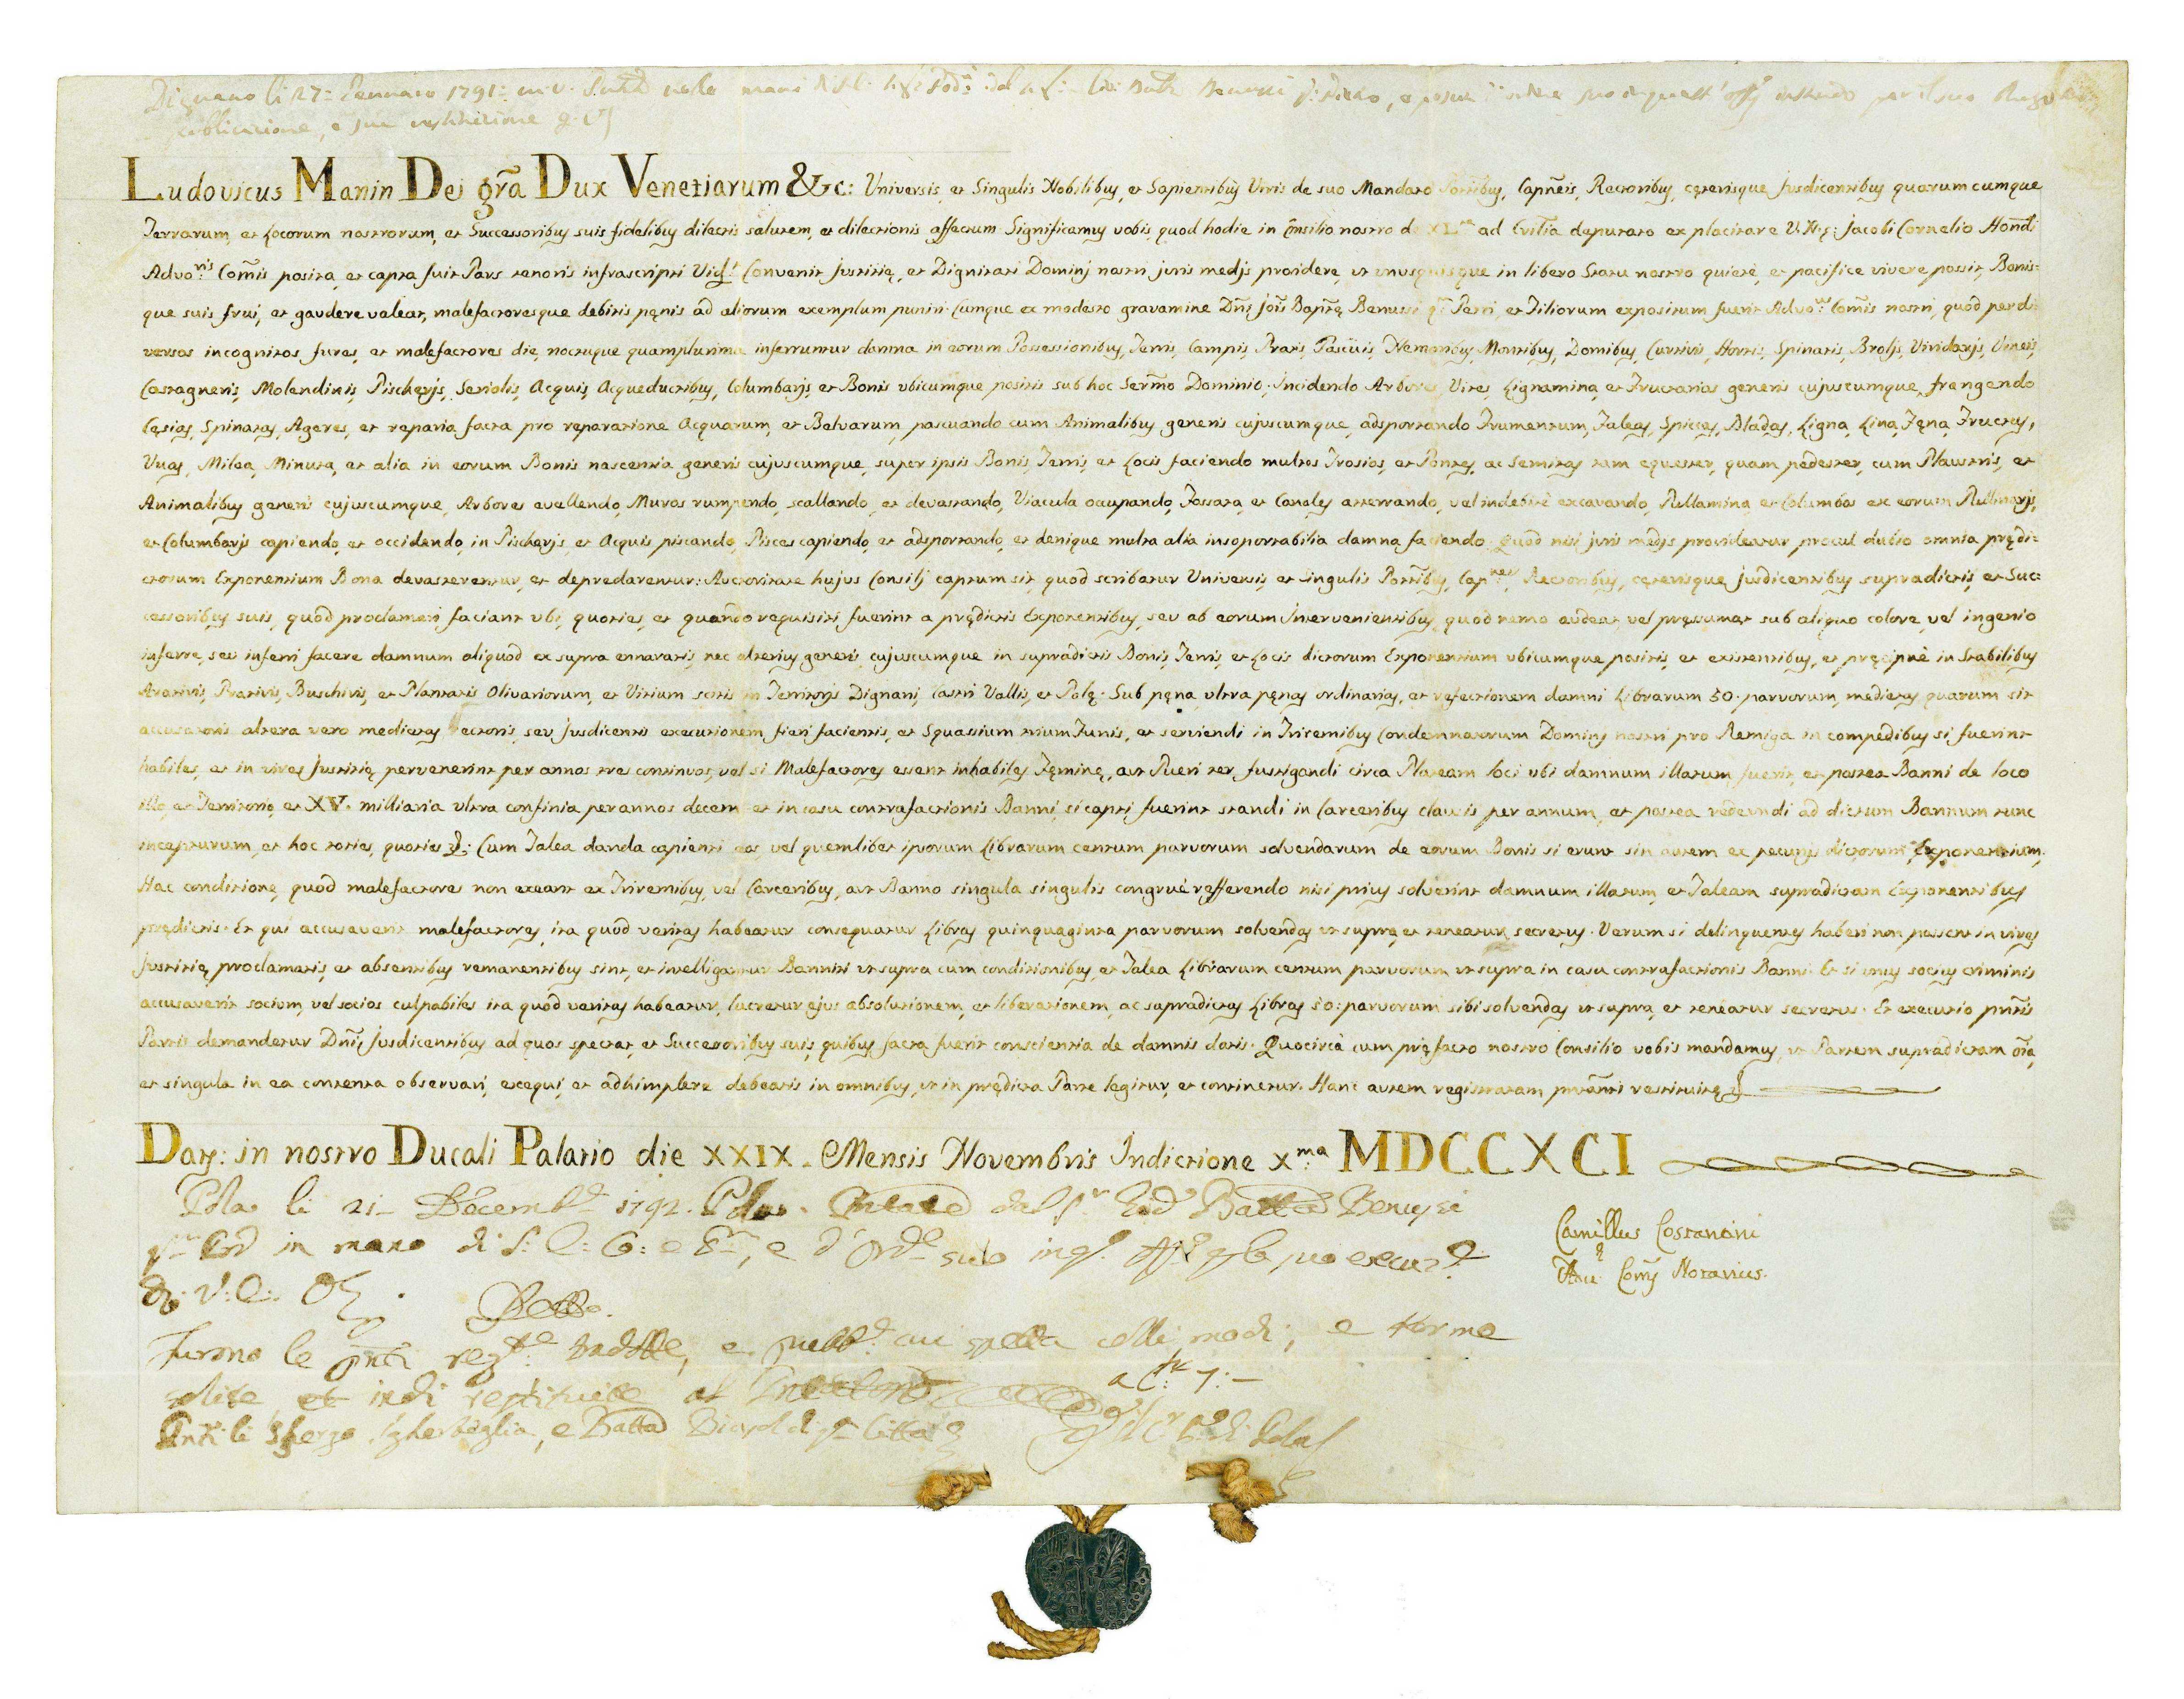 Dignano li 27: Gennaro 1791: m: v: nelle mani
publicazione, e sua restituzione
Ludovicus Manin Dei grã Dux Venetiarum &c: Universis, et Singulis Nobilibus, et Sapientibus Viris de suo Mandato Pottibus, Capneis, Rectoribus, cęterisque Jusdicentibus quorumcumque
Terrarum, et Locorum nostrorum, et Successoribus suis fidelibus dilectis salutem, et dilectionis affectum. Significamus vobis, quod hodie in Cõnsilio nostro de XLta ad Civilia deputato ex placitare V. N. Jacobi Cornelio Hondi
Advoris Comis posita, et capta fuit Pars tenoris infrascripti Vidt Convenit Justitię, et Dignitati Dominj nostri juris medjs providere, ut unusquisque in libero Statu nostro quietè, et pacifice vivere possit, Bonis:
que suis frui, et gaudere valeat, malefactoresque debitis pęnis ad aliorum exemplum puniri. Cumque ex modesto gravamine Dñi Jois Baptę Benussi q: Petri et Filiorum expositum fuerit Advo: Comis nostri, quod per di:
versos incognitos fures, et malefactores die, noctuque quamplurima inferruntur damna in eorum Possessionibus, Terris, Campis, Pratis, Pascuis, Nemoribus, Montibus, Domibus, Curtivis, Hortis, Spinatis, Broljs, Viridarjs, Vineis,
Castagnetis, Molendinis, Pischerjs, Seriolis, Acquis, Acqueductibus, Columbarjs, et Bonis ubicumque positis sub hoc Sermo Dominio: Incidendo Arbores, Vites, Lignamina, et Fructarios generis cujuscumque, frangendo
Cęsias, Spinatas, Ageres, et reparia facta pro reparatione Acquarum, et Belvarum, pascuando cum Animalibus generis cujuscumque, adsportando Frumentum, Taleas, Spiccas, Bladas, Ligna, Lina, Fęna, Fructus,
Uvas, Milea, Minuta, et alia in eorum Bonis nascentia generis cujuscumque, super ipsis Bonis, Terris, et Locis faciendo multos Trosios, et Pontes, ac Semitas tam equester, quam pedester, cum Plaustris, et
Animalibus generis cujuscumque, Arbores evellendo, Muros rumpendo, scallando, et devastando, Viacula occupando, Fossata, et Canales atterrando, vel indebitè excavando, Pullamina et Columbas ex eorum Pullinarjs,
et Columbarjs capiendo, et occidendo, in Pischerjs, et Acquis piscando, Pisces capiendo, et adsportando, et denique multa alia insoportabilia damna faciendo. Quod nisi juris medjs provideatur procul dubio omnia prędi:
ctorum Exponentium Bona devasterentur, et depredarentur: Auctoritate hujus Consilij captum sit, quod scribatur Universis, et singulis Pottibus, Capneis, Rectoribus, cęterisque Jusdicentibus supradictis, et Suc:
cessoribus suis, quòd proclamari faciant ubi, quoties, et quando requisiti fuerint a prędictis Exponentibus, seu ab eorum Intervenientibus, quod nemo audeat vel pręsumat sub aliquo colore, vel ingenio
inferre, seu inferri facere damnum aliquod ex supra ennaratis, nec alterius generis cujuscumque in supradictis Bonis, Terris, et Locis dictorum Exponentium ubicumque positis, et existentibus, et pręcipuè in Stabilibus
Arativis, Prativis, Buschivis, et Plantatis Olivariorum, et Vitium sitis in Territorjs Dignani, Castri Vallis, et Polę. Sub pęna ultra pęnas ordinarias, et refectionem damni Librarum 50. parvorum, medietas quarum sit
accusatoris altera vero medietas Rectoris, seu Jusdicentis executionem fieri facientis, et Squassium trium Funis, et serviendi in Triremibus Condemnatorum Dominj nostri pro Remigo in compedibus si fuerint
habiles, et in vires Justitię pervenerint per annos tres continuos, vel si Malefactores essent inhabiles Fęminę, aut Pueri ter fustigandi circa Plateam loci ubi damnum illatum fuerit, et postea Banni de loco
illo, et Territorio, et XV. milliaria ultra confinia per annos decem et in casu contrafactionis Banni, si capti fuerint standi in Carceribus clausis per annum, et postea redeundi ad dictum Bannum tunc
incepturum, et hoc toties, quoties: Cum Talea danda capienti eos, vel quemlibet ipsorum Librarum centum parvorum solvendarum de eorum Bonis si erunt sin autem ex pecunijs dictorum Exponentium.
Hac conditione, quod malefactores non exeant ex Triremibus, vel Carceribus, aut Banno singula singulis congruè refferendo nisi prius solverint damnum illatum, et Taleam supradictam Exponentibus
prędictis. Et qui accusaverit malefactores, ita quòd veritas habeatur consequatur Libras quinquaginta parvorum solvendas ut supra, et teneatur secretus. Verum si delinquentes haberi non possent in vires
Justitię, proclamatis, et absentibus remanentibus sint, et intelligantur Banniti ut supra cum conditionibus, et Talea Librarum centum parvorum ut supra in casu contrafactionis Banni. Et si unus socius criminis
accusaverit socium, vel socios culpabiles ita quòd veritas habeatur, lucretur ejus absolutionem, et liberationem, ac supradictas Libras 50: parvorum sibi solvendas ut supra, et teneatur secretus. Et executio pntis
Partis demandetur Dñis Jusdicentibus ad quos spectat, et Successoribus suis, quibus facta fuerit conscientia de damnis datis. Quocircà cum pręfacto nostro Consilio vobis mandamus, ut Partem supradictam oĩa,
et singula in ea contenta observari, exequi, et adhimplere debeatis in omnibus, ut in prędicta Parte legitur, et continetur. Hanc autem registratam pntanti restituite
Dat: in nostro Ducali Palatio die XXIX. Mensis Novembris Indictione Xma MDCCXCI
Pola li 21 Decembe 1792.
Camillus Costantini
in mano di
Com Notarius.
Furono le pnti
modi, e forme
di Pola